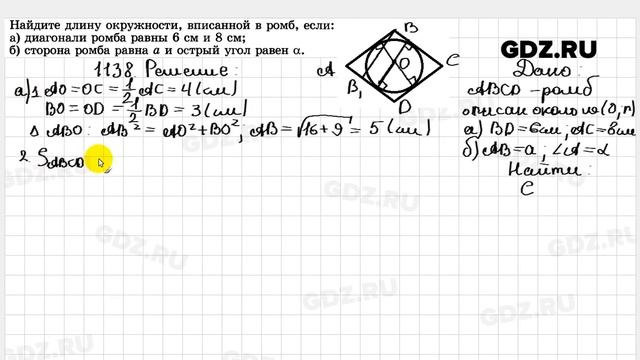 Найдите длину окружности, вписанной в ромб, если:
а) диагонали ромба равны 6 см и 8 см;
б) сторона ромба равна a и острый угол равен α.
1138 Решение:
а) 1 AO = OC = 1/2 AC = 4 (см)
BO = OD = 1/2 BD = 3 (см)
Δ ABO: AB² = AO² + BO²; AB = √16+9 = 5 (см)
2. S ABCD
A
B
C
D
O
B₁
GDZ.RU
Дано:
ABCD - ромб
описан около (O, r)
а) BD = 6см; AC = 8см
б) AB = a; ∠A = α
Найти:
C
GDZ.RU
GDZ.RU
GDZ.RU
GDZ.RU
GDZ.RU